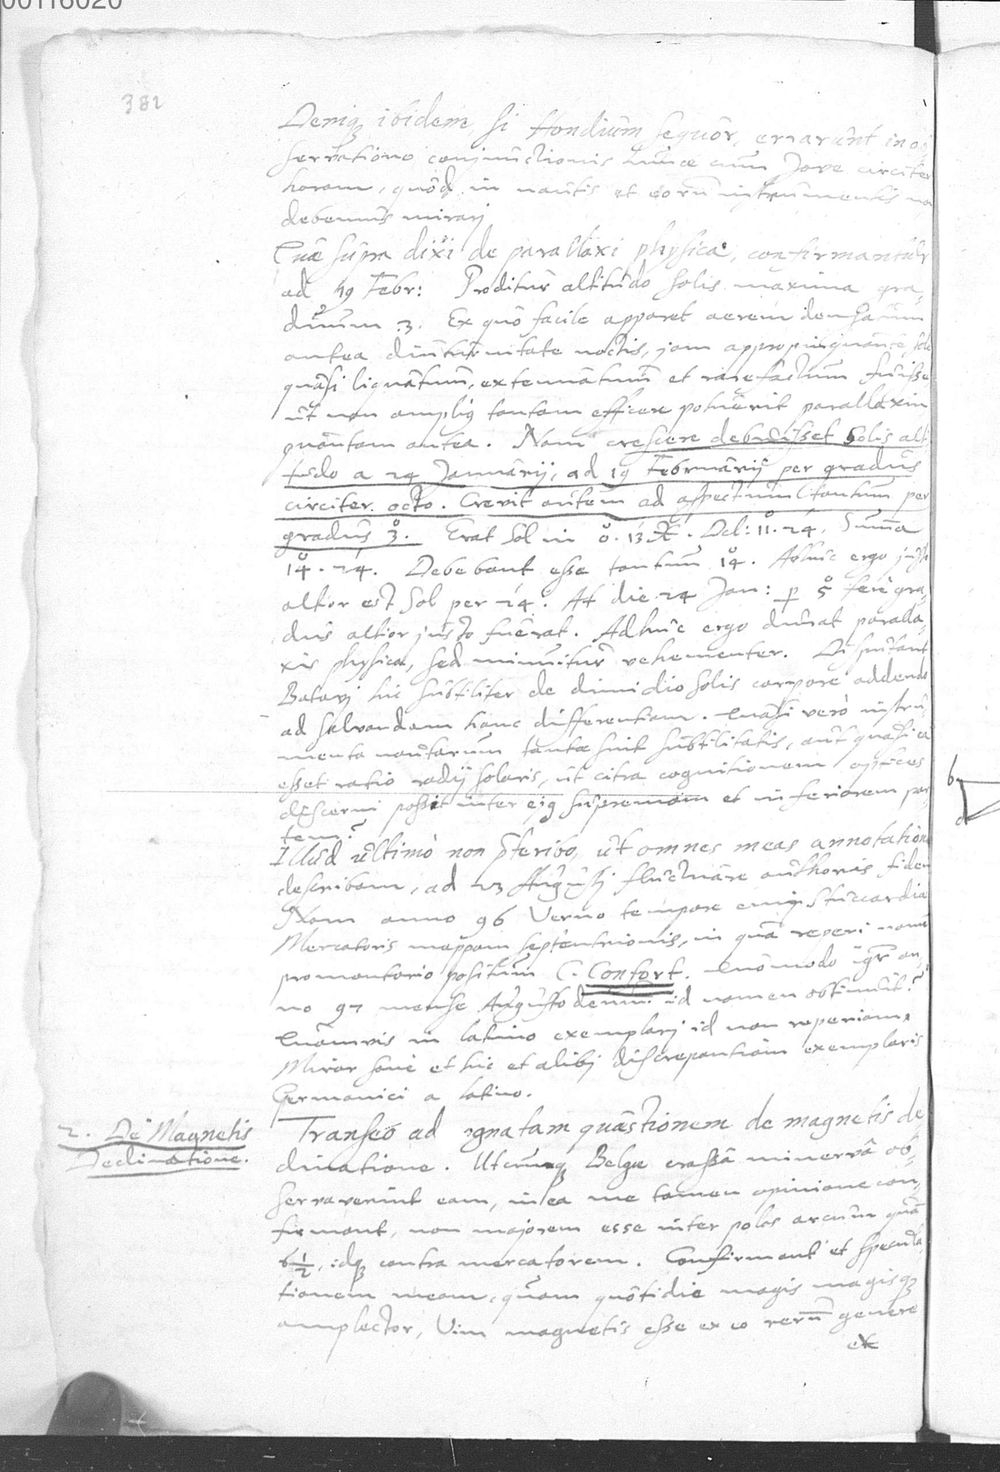 00116020
382
Deniq; ibidem, si fondium sequor, errarunt in ob
servatione conjunctionis lunæ cum Jove circiter
horam, quod in nautis et eorum instrumentis no
debemus mirarj
Quæ supra dixi de parallaxi physica, confirmantur
ad 19 Febr: Proditur altitudo solis maxima gra,
duum 3. Ex quo facile apparet aerem densatum
antea diuturnitate noctis, jam appropinquante sole
quasi liquatum, extenuatum et rarefactum fuisse
ut non amplius tantam efficere potuerit parallaxin
quantam antea. Nam crescere debuisset Solis alti
tudo a 24 Januarij, ad 19 Februarij per gradus
circiter octo. Crevit autem ad aspectum tantum per
gradus 3. Erat Sol in 0. 13 ♓. Decl: 11. 24. Summa
14. 24. Debebant esse tantum 14. Adhuc ergo justo
altior est Sol per 24. At die 24 Jan: p 5 fere gra,
dus altior justo fuerat. Adhuc ergo durat paralla,
xis physica, sed minuitur vehementer. Disputant
Batavj hic subtiliter de dimidio solis corpore addendo
ad salvandam hanc differentiam. Quasi vero instru
menta nautarum tanta sint subtilitatis, aut quasi ea
esset ratio radij solaris, ut citra cognitionem optices
discerni possit inter ejus supremam et inferiorem par
tem?
Illud ultimo non prteribo, ut omnes meas annotatione
describam, ad 23 Augusti fluctuare authoris fidem
Nam anno 96 Verno tempore emi Stuccardiæ
Mercatoris mappam septentrionis, in qua reperi nomen
promontorio positum C. Confort. Quomodo igr an,
no 97 mense Augusto demum id nomen obtinuit?
Quamvis in latino exemplarj id non reperiam.
Miror sane et hic et alibj discrepantiam exemplaris
Germanici a latino.
2. De Magnetis
Declinatione.
Transeo ad cognatam quæstionem de magnetis de
clinatione. Utcunq; Belgæ crassâ minervâ ob,
servaverint eam, in ea me tamen opinione con,
firmant, non majorem esse inter polos arcum quam
6 1/2, idq; contra mercatorem. Confirmant et specula
tionem meam, quam quotidie magis magisq;
amplector, Vim magnetis esse ex eo rerum genere
ex
b
d